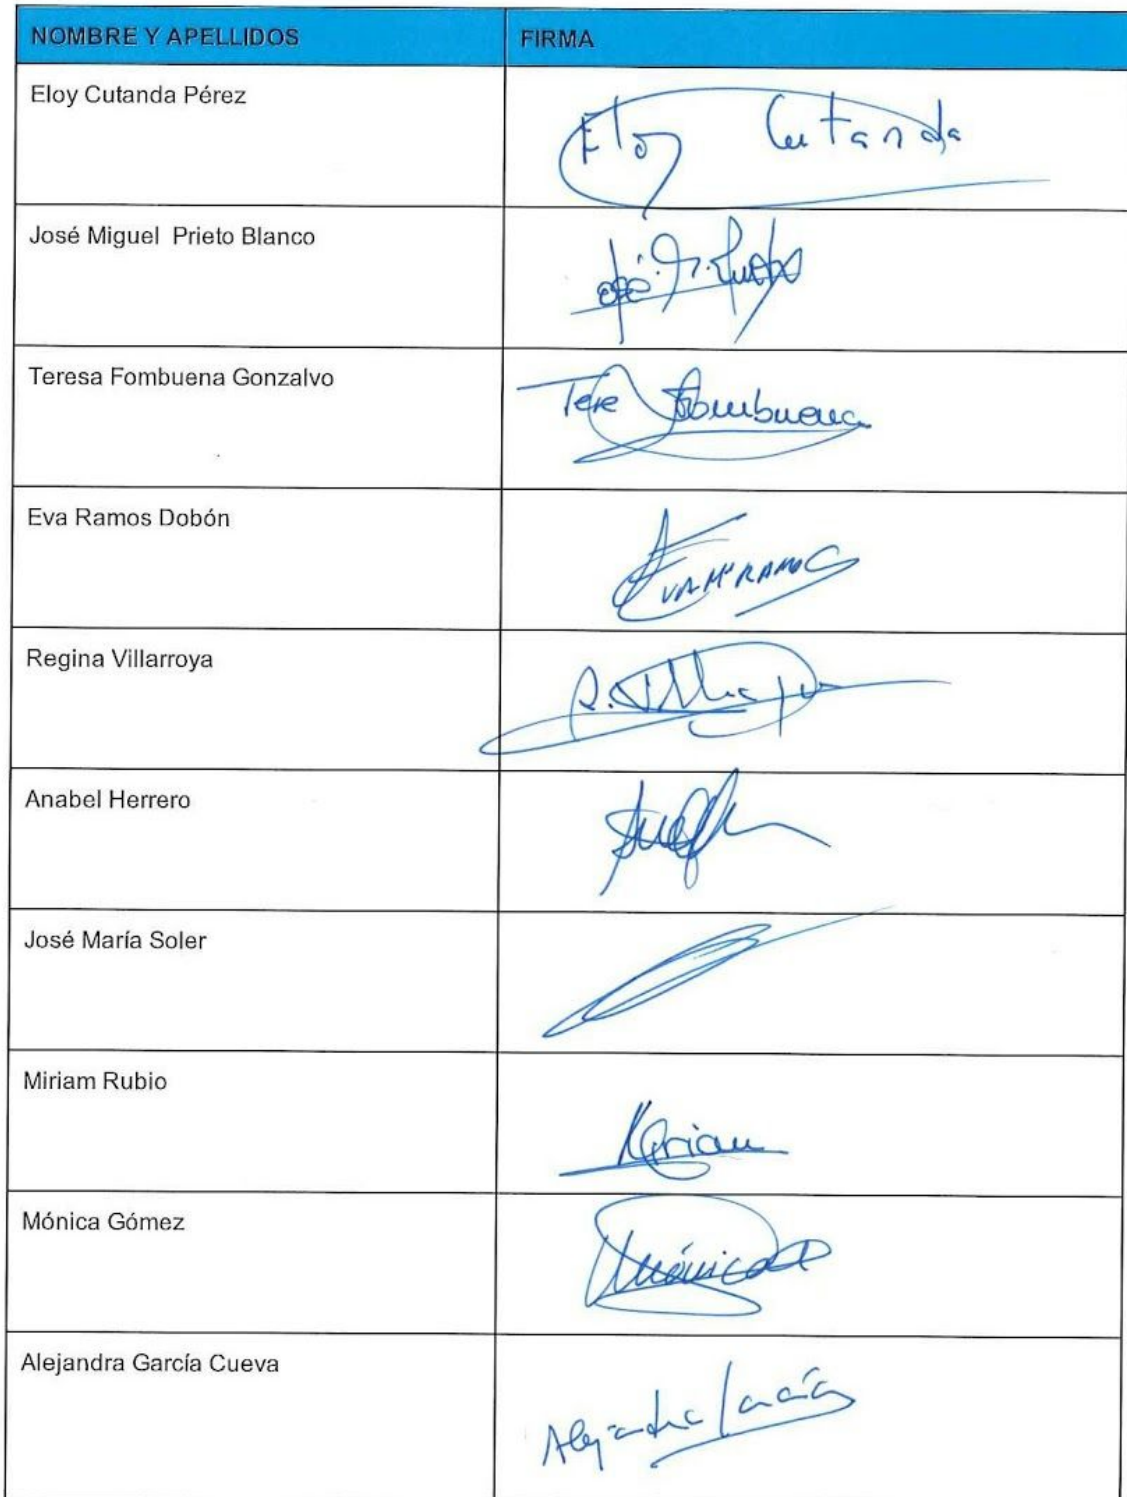 NOMBRE Y APELLIDOS FIRMA
Eloy Cutanda Pérez Eloy Cutanda
José Miguel Prieto Blanco José M. Prieto
Teresa Fombuena Gonzalvo Tere Fombuena
Eva Ramos Dobón EVA Mª RAMOS
Regina Villarroya R.
Anabel Herrero
José María Soler
Miriam Rubio Miriam
Mónica Gómez Mónica
Alejandra García Cueva Alejandra García